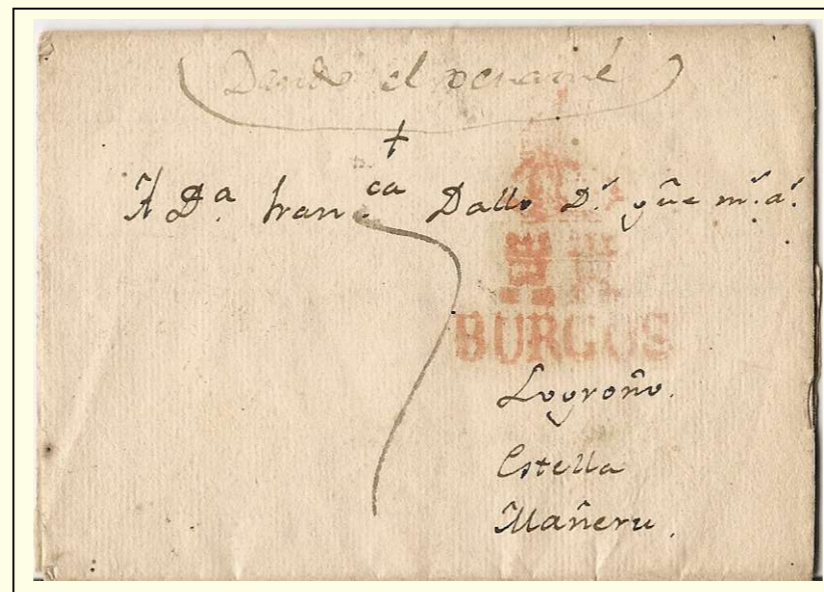 el
+
A D.ª Fran.ca Dallo D.s gue m.s a.s
BURGOS
Logroño.
Estella
Mañeru.